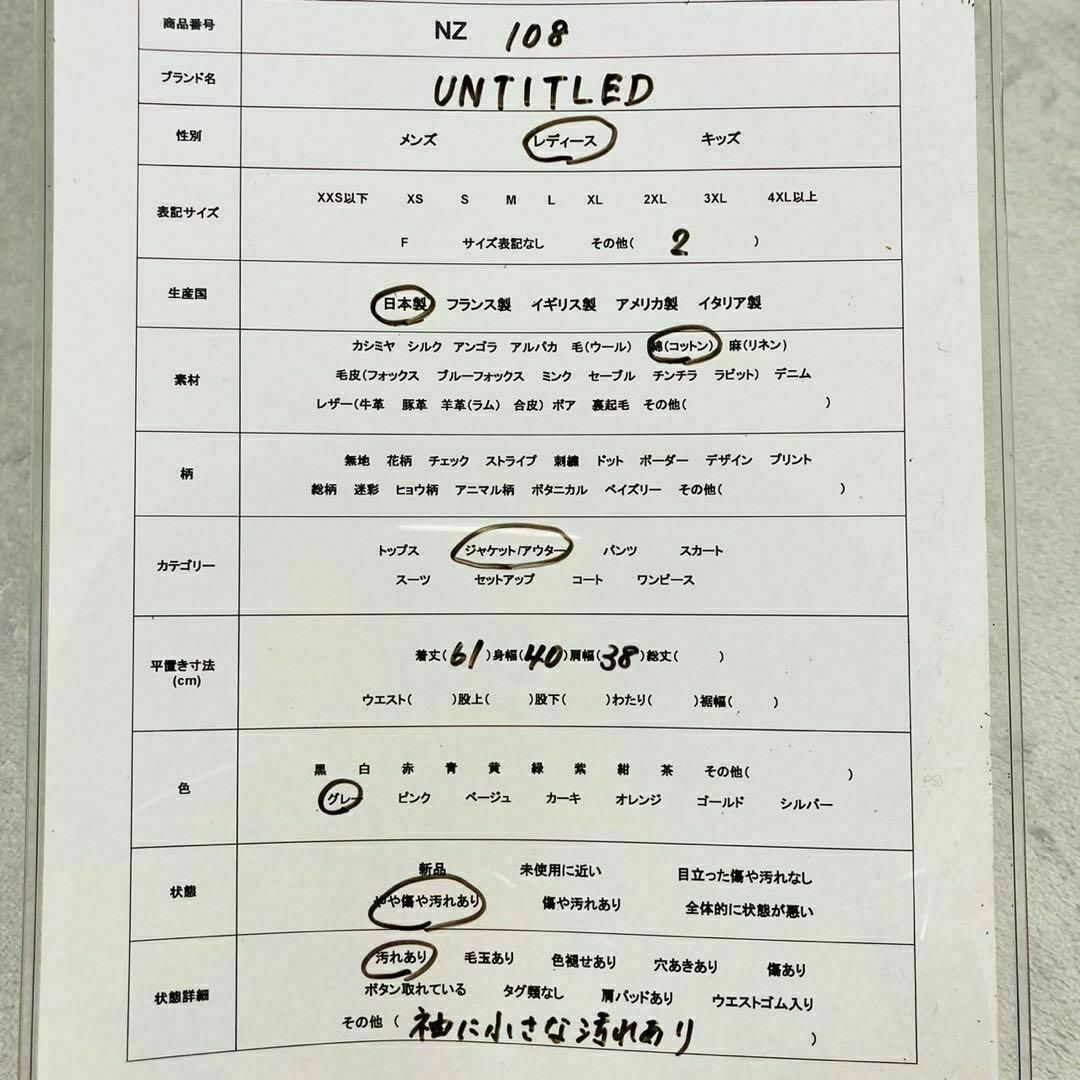 商品番号 NZ 108
ブランド名 UNTITLED
性別 メンズ レディース キッズ
表記サイズ
XXS以下 XS S M L XL 2XL 3XL 4XL以上
F サイズ表記なし その他( 2 )
生産国 日本製 フランス製 イギリス製 アメリカ製 イタリア製
素材
カシミヤ シルク アンゴラ アルパカ 毛(ウール) 綿(コットン) 麻(リネン)
毛皮(フォックス ブルーフォックス ミンク セーブル チンチラ ラビット) デニム
レザー(牛革 豚革 羊革(ラム) 合皮) ボア 裏起毛 その他( )
柄
無地 花柄 チェック ストライプ 刺繍 ドット ボーダー デザイン プリント
総柄 迷彩 ヒョウ柄 アニマル柄 ボタニカル ペイズリー その他( )
カテゴリー
トップス ジャケット/アウター パンツ スカート
スーツ セットアップ コート ワンピース
平置き寸法
(cm)
着丈(61)身幅(40)肩幅(38)総丈( )
ウエスト( )股上( )股下( )わたり( )裾幅( )
色
黒 白 赤 青 黄 緑 紫 紺 茶 その他( )
グレー ピンク ベージュ カーキ オレンジ ゴールド シルバー
状態
新品 未使用に近い 目立った傷や汚れなし
やや傷や汚れあり 傷や汚れあり 全体的に状態が悪い
状態詳細
汚れあり 毛玉あり 色褪せあり 穴あきあり 傷あり
ボタン取れている タグ類なし 肩パッドあり ウエストゴム入り
その他 ( 袖に小さな汚れあり )